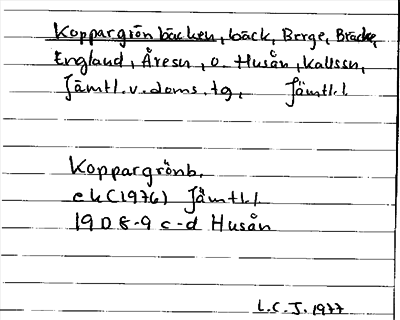 Koppargrönbäcken, bäck, Berge, Bräcke,
England, Åresn, o. Husån, Kallssn,
Jämtl. v. doms. tg, Jämtl. l
Koppargrönb.
ek (1976) Jämtl. l
19 D 8-9 c-d Husån
L.C.J. 1977